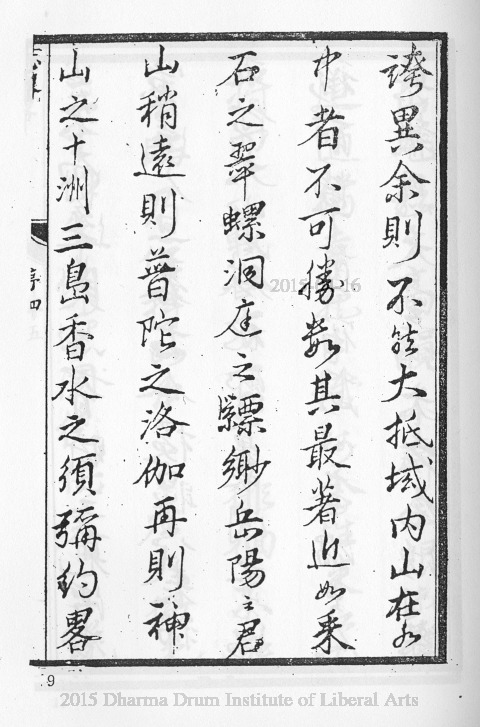 誇異余則不能大抵域内山在水
中者不可勝數其最著近如采
石之翠螺洞庭之縹緲岳陽之君
山稍遠則普陀之洛伽再則神
山之十洲三島香水之須彌約畧
序四
9
2015 Dharma Drum Institute of Liberal Arts